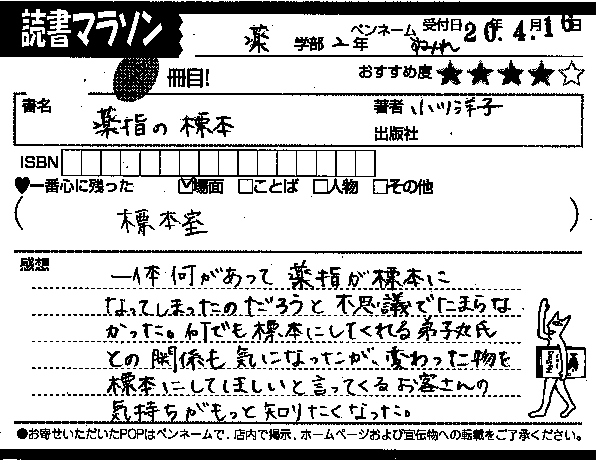 読書マラソン
薬 学部 2年 ペンネーム すみれ 受付日 20年 4月 16日
冊目! おすすめ度 ★★★★☆
書名 薬指の標本 著者 小川洋子
出版社
ISBN
♥一番心に残った ☑場面 □ことば □人物 □その他
( 標本室 )
感想
一体何があって 薬指が標本に
なってしまったのだろうと 不思議でたまらな
かった。何でも標本にしてくれる弟子丸氏
との関係も気になったが、変わった物を
標本にしてほしいと言ってくるお客さんの
気持ちがもっと知りたくなった。
●お寄せいただいたPOPはペンネームで、店内で掲示、ホームページおよび宣伝物への転載をご了承ください。